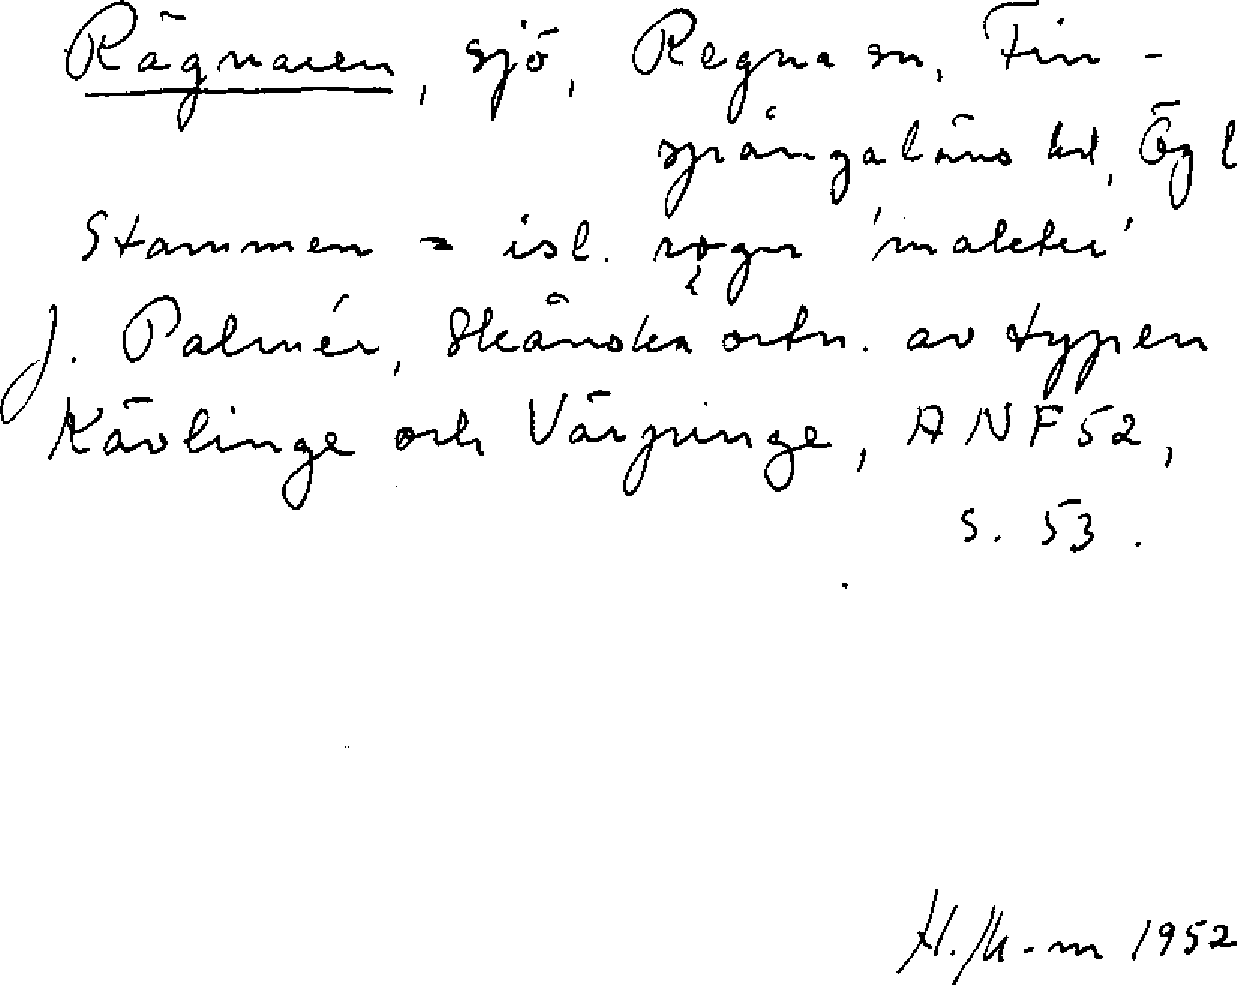 Rägnaren, sjö, Regna sn, Fin-
spångaläns hd, Ögl
Stammen = isl. rǫgn 'makter'
J. Palmér, Skånska ortn. av typen
Kävlinge och Värpinge, ANF 52,
s. 53.
1952